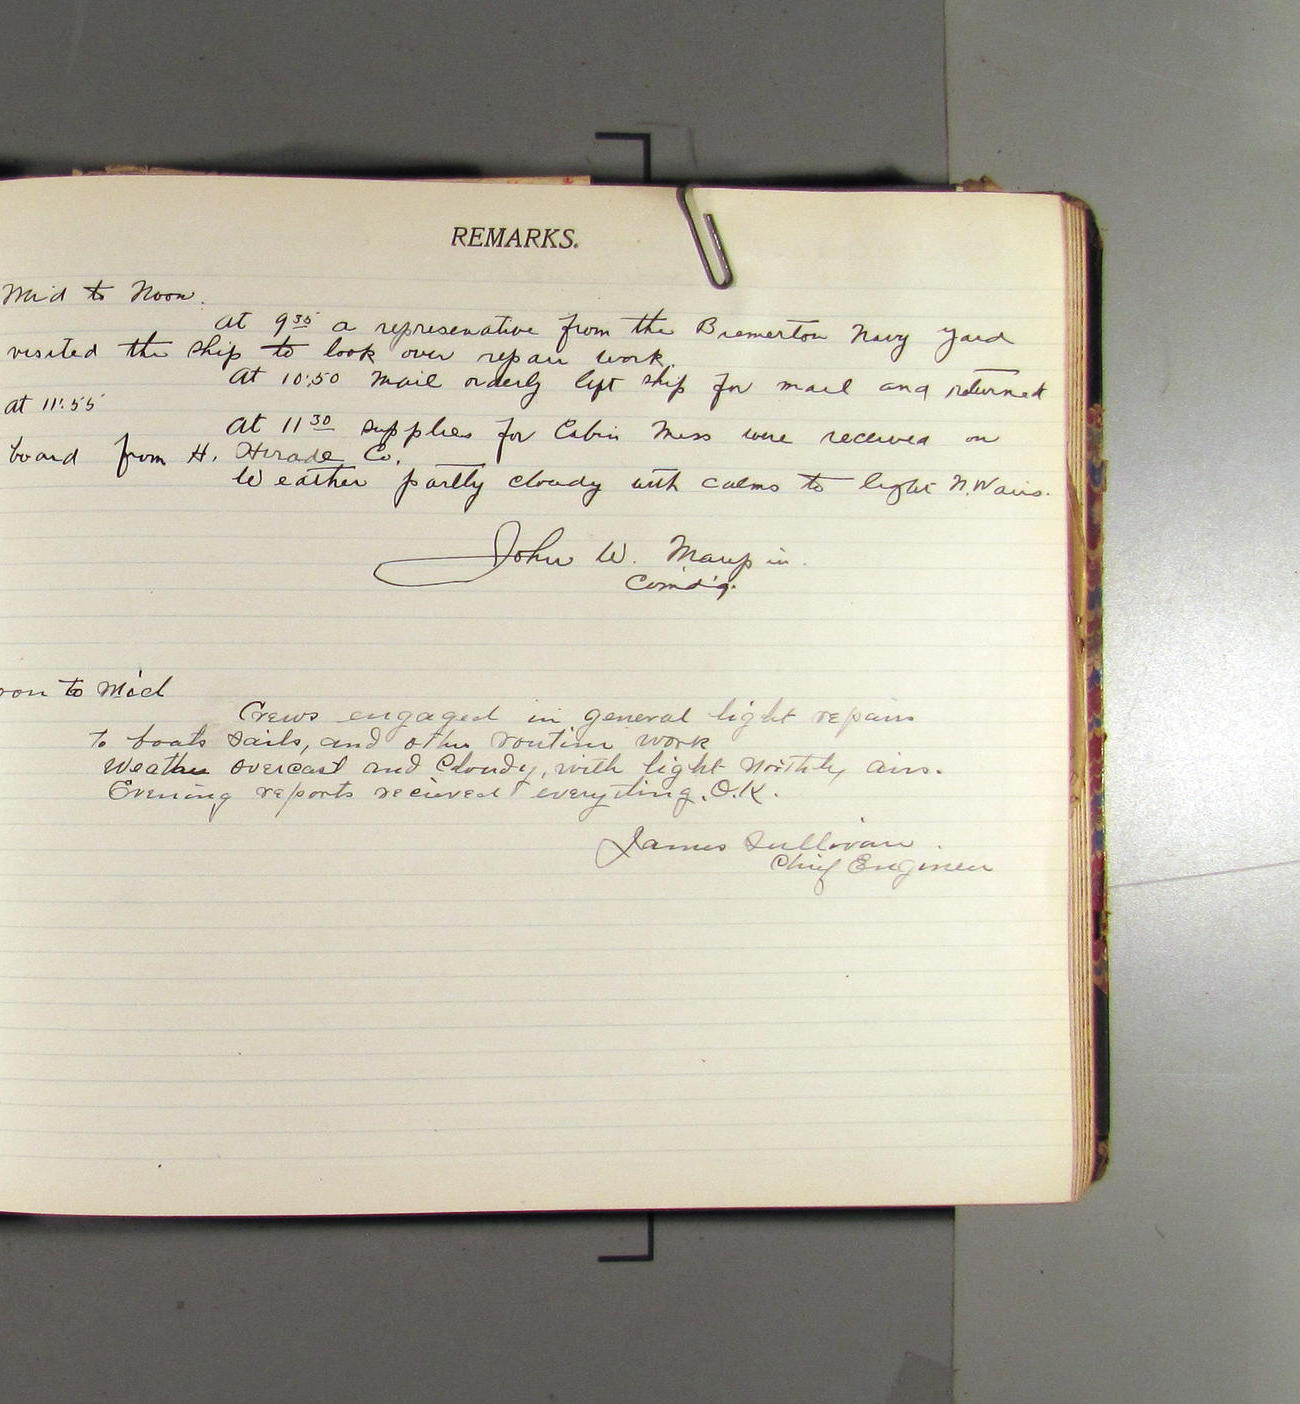 REMARKS.
Mid to Noon.
At 9 35 a represenative from the Bremerton Navy Yard
visited the ship to look over repair work.
At 10:50 mail orderly left ship for mail and returned
at 11:55
At 11 30 supplies for Cabin Mess were received on
board from H. Hirade Co.
Weather partly cloudy with calms to light N.W airs.
John W. Maupin.
Com'd'g.
oon to Mid
Crews engaged in general light repairs
to boats sails, and other routine work
Weather overcast and Cloudy, with light Northly airs.
Evening reports recieved everything O.K.
James Sullivan.
Chief Engineer